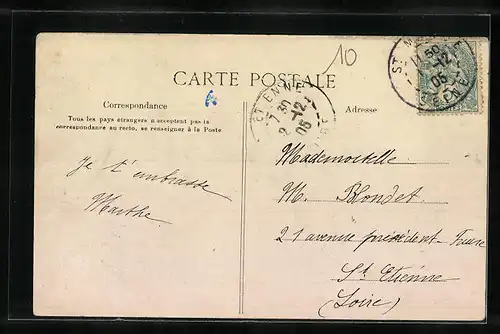 10
CARTE POSTALE
Correspondance
Tous les pays étrangers n'acceptent pas la
correspondance au recto, se renseigner à la Poste
Je t'embrasse
Marthe
ST
30
12
05
ETIENNE
7 30
2 -12
05
Adresse
Mademoiselle
M. Blondet
21 avenue président-Faure
St Etienne
(Loire)